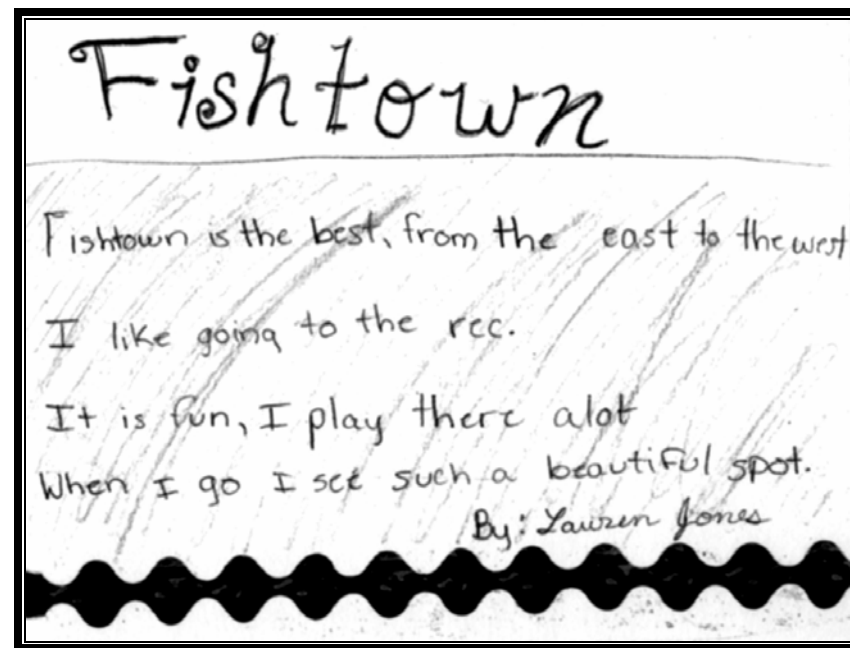 Fishtown
Fishtown is the best, from the east to the west
I like going to the rec.
It is fun, I play there alot
When I go I see such a beautiful spot.
By: Lauren Jones